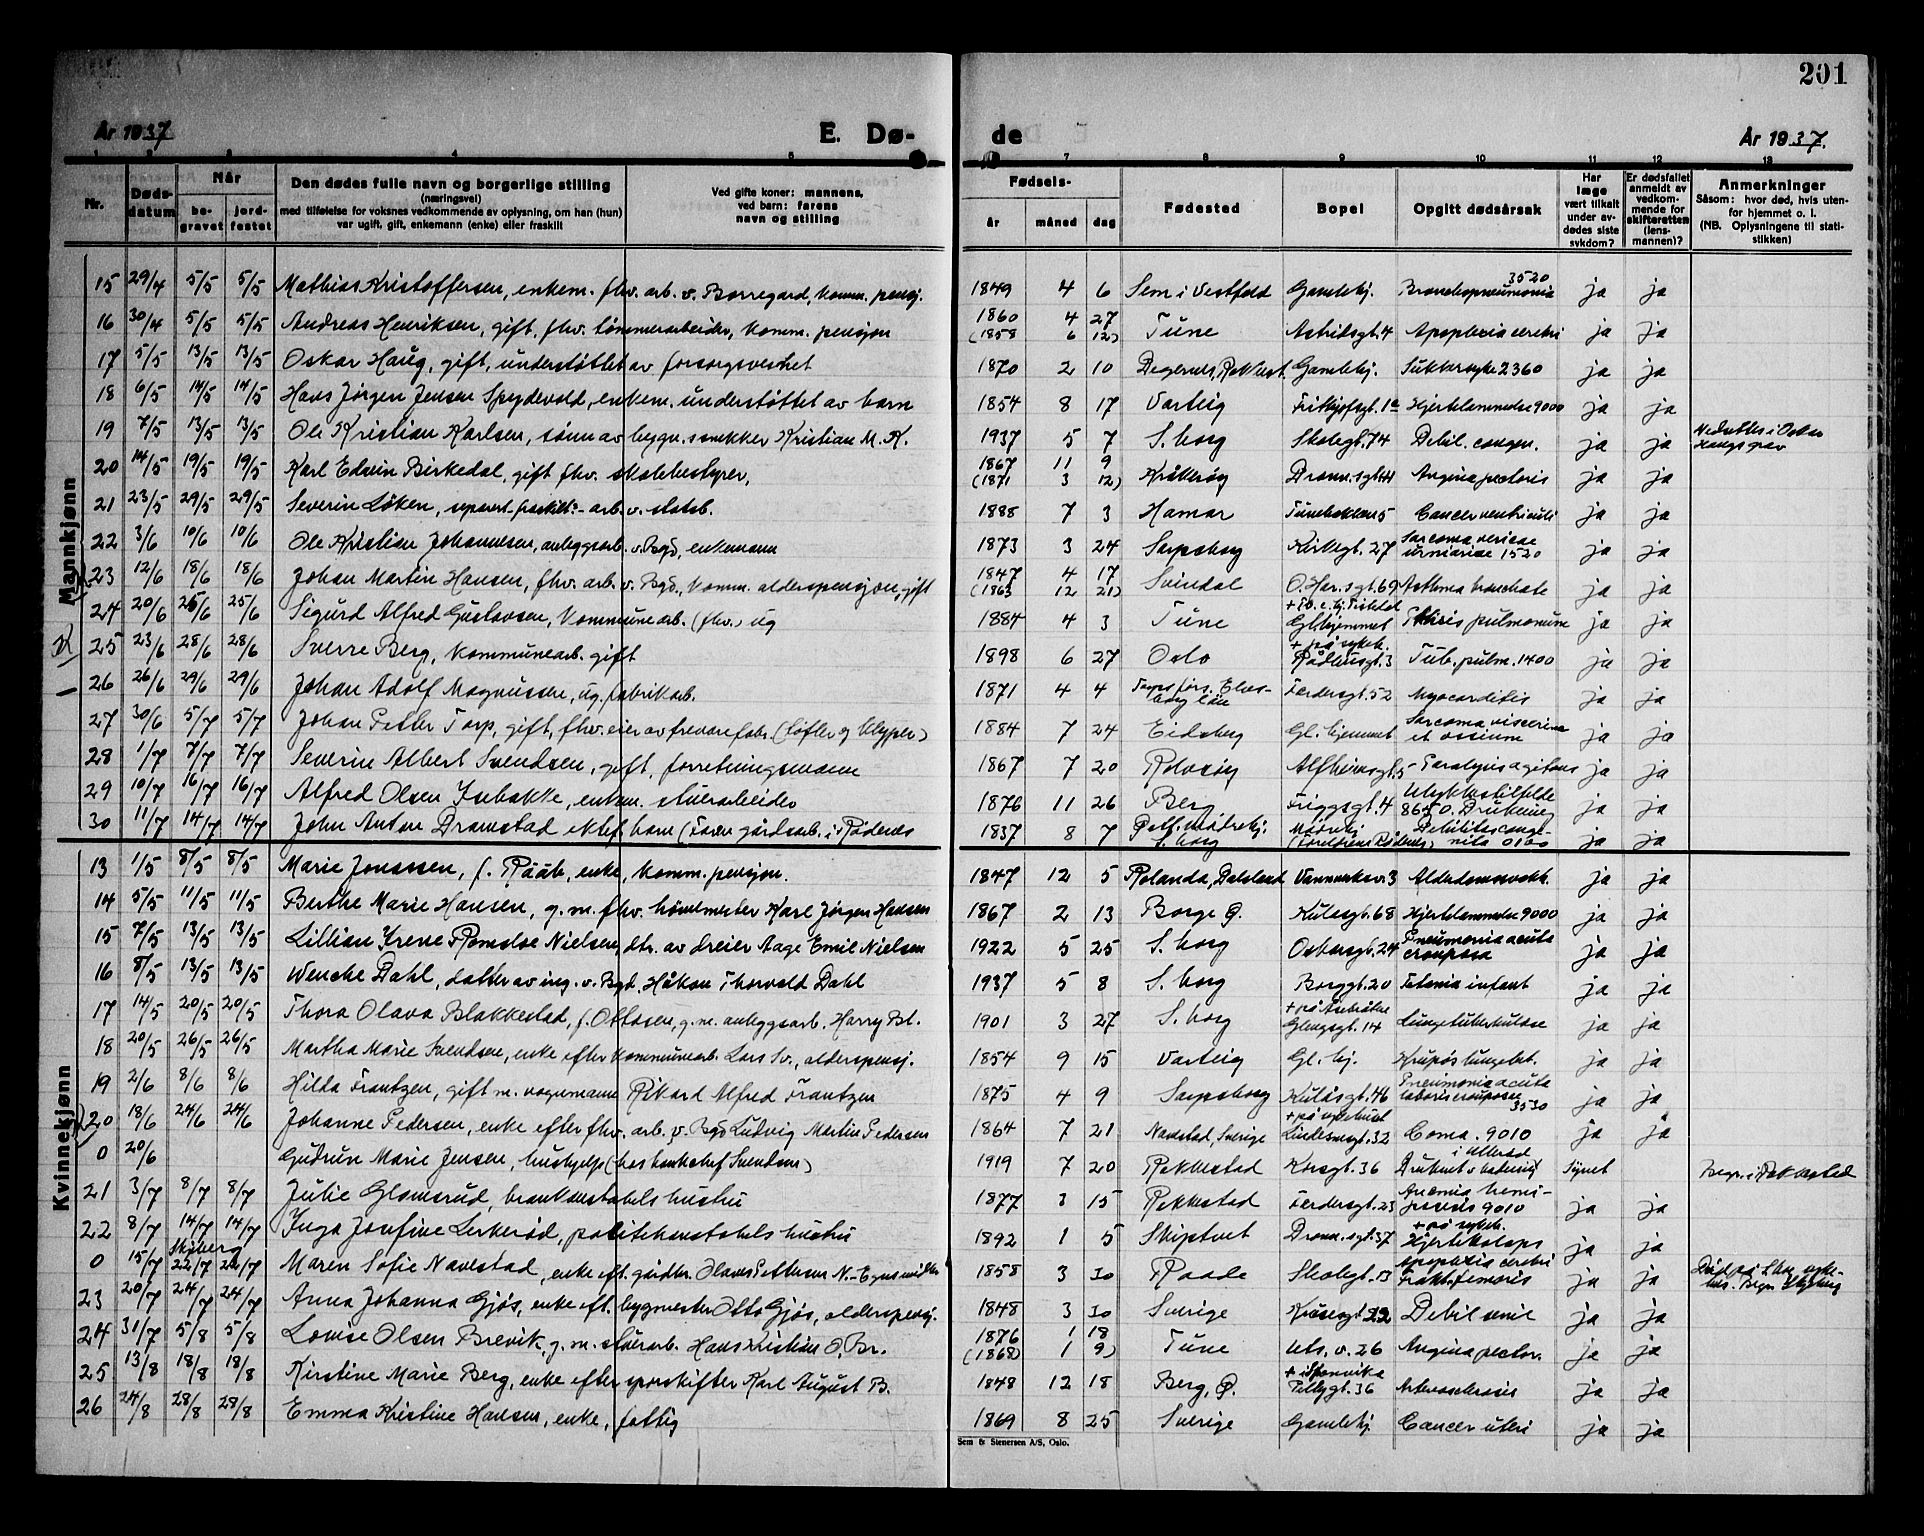 201
År 1937
E. Dø-
de
År 1937.
1 2 3 4 5 7 8 9 10 11 12 13
Nr.
Døds-
datum
Når
be-
gravet
jord-
festet
Den dødes fulle navn og borgerlige stilling
(næringsvei)
med tilføielse for voksnes vedkommende av oplysning, om han (hun)
var ugift, gift, enkemann (enke) eller fraskilt
Ved gifte koner: mannens,
ved barn: farens
navn og stilling
Fødsels-
år måned dag
Fødested
Bopel
Opgitt dødsårsak
Har
læge
vært tilkalt
under av-
dødes siste
sykdom?
Er dødsfallet
anmeldt av
vedkom-
mende for
skifteretten
(lens-
mannen)?
Anmerkninger
Såsom: hvor død, hvis uten-
for hjemmet o. l.
(NB. Oplysningene til stati-
stikken)
Mannkjønn
15 29/4 5/5 5/5 Mathias Kristoffersen, enkem. fhv. arb. v. Borregard, komm. pensj. 1849 4 6 Sem i Vestfold Gamlehj. Bronchopneumonia 3520 ja ja
16 30/4 5/5 5/5 Andreas Henriksen, gift, fhv. tømmerarbeider, komm. pensjon 1860 4 27 (1858 6 12) Tune Astridsgt. 4 Apoplexia cerebri ja ja
17 5/5 13/5 13/5 Oskar Haug, gift, understøttet av forsorgsvesenet 1870 2 10 Degernes, Gamlehj. Sukkersyke 2360 ja ja
18 6/5 14/5 14/5 Hans Jørgen Jensen Spydevold, enkem. understøttet av barn 1854 8 17 Varteig Fritjofsgt. 1a Hjertelammelse 9000 ja ja
19 7/5 13/5 13/5 Ole Kristian Karlsen, sønn av bygn. snekker Kristian M. K. 1937 5 7 S. borg Skolegt. 74 Debil. congen. ja ja Nedsettes i Oskar Haugs grav
20 14/5 19/5 19/5 Karl Edwin Birkedal, gift fhv. skolebestyrer, 1867 11 9 (1871 3 12) Kråkerøy Dronn.sgt. 41 Angina pectoris ja ja
21 23/5 29/5 29/5 Severin Løken, separert fraskilt - arb. v. statsb. 1888 7 3 Hamar Tunebakken 5 Cancer ventriculi ja ja
22 3/6 10/6 10/6 Ole Kristian Johannesen, anleggsarb. v. Bgd, enkemann 1873 3 24 Sarpsborg Kirkegt. 27 Sarcoma vesicae urinariae 1520 ja ja
23 12/6 18/6 18/6 Johan Martin Hansen, fhv. arb. v. Bgd., komm. alderspensjon, gift 1847 4 17 (1863 12 21) Svindal O. Har.sgt. 69 Asthma bronchiale ja ja
24 20/6 25/6 25/6 Sigurd Alfred Gustavsen, kommunearb. (fhv.) ug 1884 4 3 Tune Gl. hjemmet Phthisis pulmonum ja ja
25 23/6 28/6 28/6 Sverre Berg, kommunearb. gift 1898 6 27 Oslo + på sykeh. Rådhusgt. 3 Tub. pulm. 1400 ja ja
26 26/6 29/6 29/6 Johan Adolf Magnussen, ug. fabrikarb. 1871 4 4 Elvs-borg län Ferdersgt. 52 Myocarditis ja ja
27 30/6 5/7 5/7 Johan Petter Torp, gift, fhv. eier av trevarefabr. (tøfler og klypper) 1884 7 24 Eidsberg Gl. hjemmet Sarcoma et ossium ja ja
28 1/7 7/7 7/7 Severin Albert Svendsen, gift, forretningsmann 1867 7 20 Rolvsøy Alfheimsgt. 5 Paralysis agitans ja ja
29 10/7 16/7 16/7 Alfred Olsen Isebakke, enkem. stuerarbeider 1876 11 26 Berg Friggsgt. 4 Ulykkestilfelle 8650. Drukning ja ja
30 11/7 14/7 14/7 John Anton Dramstad ektef. barn (Foren gårdsarb. i Rødenes 1837 8 7 Østf. Mødrehj. S. borg Mødrehj. (Foreldrene Rødenes) Debilitas conge-nita 0100 ja ja
Kvinnekjønn
13 1/5 8/5 8/5 Marie Jonassen, f. Rååb, enke, komm. pensjon. 1847 12 5 Rolanda, Dalsland Vannverksv. 3 Alderdomssvakh. ja ja
14 5/5 11/5 11/5 Berthe Marie Hansen, g. m. fhv. tømmermester Karl Jørgen Hansen 1867 2 13 Borge Ø. Kulåsgt. 68 Hjertelammelse 9000 ja ja
15 7/5 13/5 13/5 Lillian Irene Romsloe Nielsen, dtr. av dreier Aage Emil Nielsen 1922 5 25 S. borg Oskarsgt. 24 Pneumonia acuta crouposa ja ja
16 8/5 13/5 13/5 Wenche Dahl, datter av ing. v. Bgd. Håkon Thorvald Dahl 1937 5 8 S. borg Borggt. 20 Tetania infant ja ja
17 14/5 20/5 20/5 Thora Olava Blakkestad, f. Ottosen, g. m. anleggsarb. Harry Bl. 1901 3 27 S. borg Glengsgt. 14 Lungetuberkulose ja ja
18 20/5 26/5 26/5 Martha Marie Svendsen, enke efter kommunearb. Lars Sv., alderspensj. 1854 9 15 Varteig Gl. hj. Krupøs lungebet. ja ja
19 2/6 8/6 8/6 Hilda Frantzen, gift m. vognmann Rikard Alfred Frantzen 1875 4 9 Sarpsborg Kulåsgt. 46 Pneumonia acuta lobaris crouposa 3530 ja ja
20 18/6 24/6 24/6 Johanne Pedersen, enke efter fhv. arb. v. Bgd Ludvig Martin Pedersen 1864 7 21 Navestad, Sverige + på sykehuset Lindemsgt. 32 Coma. 9010 ja ja
0 20/6 Gudrun Marie Jensen, hushjelp (hos banksjef Svendsen) 1919 7 20 Rakkestad Korsgt. 36 Druknet v. badning Synet Begr. i Rakkestad
21 3/7 8/7 8/7 Julie Glomsrud, brankonstabels hustru 1877 3 15 Rakkestad Ferdersgt. 23 9010 ja ja
22 8/7 14/7 14/7 Inga Josefine Lerkerød, politikonstabels hustru 1892 1 5 Skiptvet Dronn.sgt. 37 + på sykeh. Hjertekolaps ja ja
0 15/7 Skjeberg 22/7 22/7 Maren Sofie Navestad, enke eft. gårdbr. Olaves Pettersen N. 1858 3 30 Raade Skolegt. 13 Apoplexia cerebri Frakt. femoris ja ja
23 20/7 24/7 24/7 Anna Johanna Gjøs, enke eft. bygmester Otto Gjøs, alderspensj. 1848 3 30 Sverige 22 Debil. senil ja ja
24 31/7 5/8 5/8 Lovise Olsen Brevik, g. m. stuerarb. Hans Kristian O. Br. 1876 1 18 (1868) 1 9) Tune Uts. v. 26 Angina pector. ja ja
25 13/8 18/8 18/8 Kirstine Marie Berg, enke efter sporskifter Karl August B. 1848 12 18 Berg, Ø. Pellygt. 36 Arteriosclerosis ja ja
26 24/8 28/8 28/8 Emma Kristine Hansen, enke, fattig 1869 8 25 Sverige Gamlehj. Cancer uteri ja ja
Sem & Stenersen A/S, Oslo.